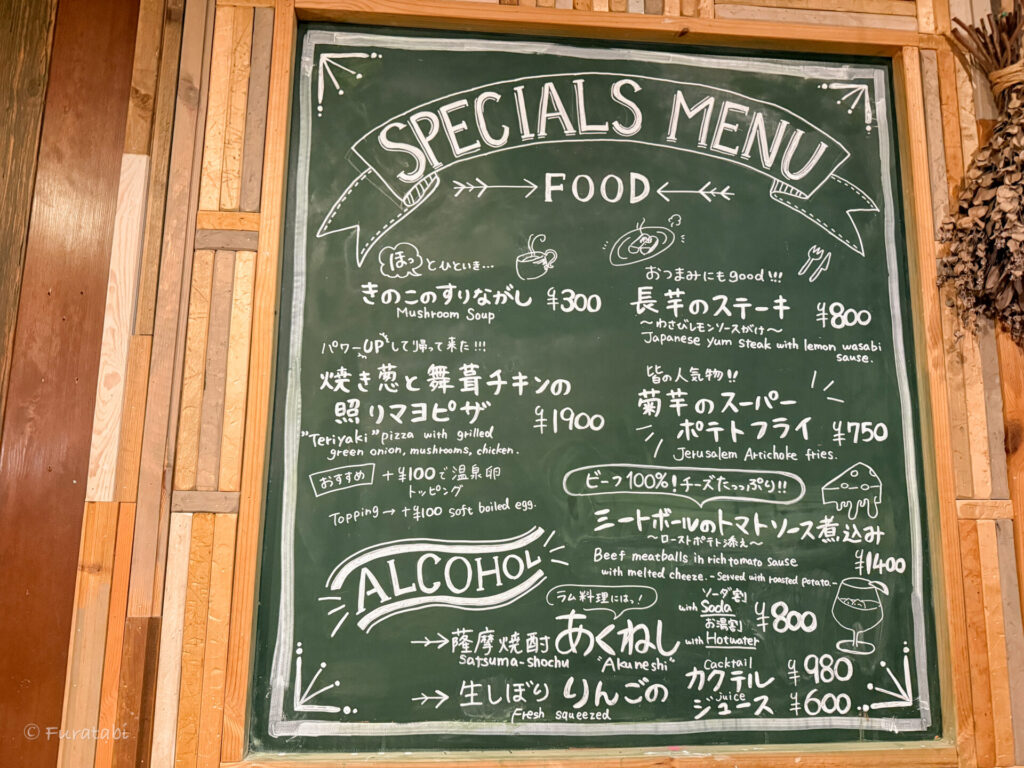 SPECIALS MENU
FOOD
ほっとひといき...
きのこのすりながし ¥300
Mushroom Soup
パワーUPして帰って来た!!!
焼き葱と舞茸チキンの
照りマヨピザ ¥1900
"Teriyaki" pizza with grilled
green onion, mushrooms, chicken.
おすすめ +¥100で温泉卵
トッピング
Topping → +¥100 soft boiled egg.
おつまみにもgood!!!
長芋のステーキ ¥800
〜わさびレモンソースがけ〜
Japanese yum steak with lemon wasabi
sause.
皆の人気物!!
菊芋のスーパー
ポテトフライ ¥750
Jerusalem Artichoke fries.
ビーフ100%!チーズたっっぷり!!
ミートボールのトマトソース煮込み
〜ローストポテト添え〜
¥1400
Beef meatballs in rich tomato sause
with melted cheeze. - Served with roasted potato. -
ALCOHOL
ラム料理にはっ!
薩摩焼酎 あくねし
Satsuma-shochu "Akuneshi"
ソーダ割
with Soda
お湯割
with Hotwater
¥800
生しぼり りんごの
Fresh squeezed
Cocktail
カクテル ¥980
juice
ジュース ¥600
© Furatabi